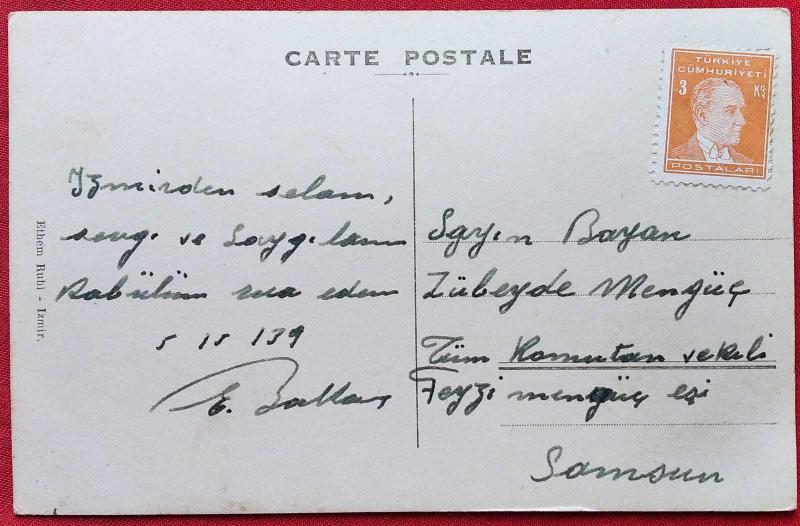 CARTE POSTALE
TÜRKİYE
CÜMHURİYETİ
3 Kş
POSTALARI
İzmirden selam,
sevgi ve Saygıların
Kabülün rica eden
139
E.
Ethem Ruhi - Izmir.
Sayın Bayan
Zübeyde Mengüç
Tüm Komutan vekili
Feyzi mengüç eşi
Samsun